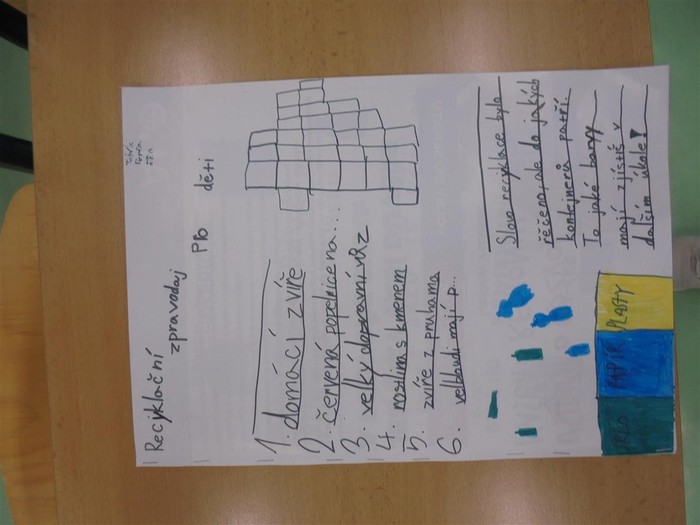 Recyklační
zpravodaj
Pro děti
1. domácí zvíře
2. červená popelnice na...
3. velký dopravní vůz
4. rostlina s kmenem
5. zvíře z pruhama
6. velbaudi mají p...
Slovo recyklace bylo
řečeno, ale do jakých
kontejnerů patří.
To jaké barvy
mají zjistíš v
dalším úkole!
SKLO PAPÍR PLASTY